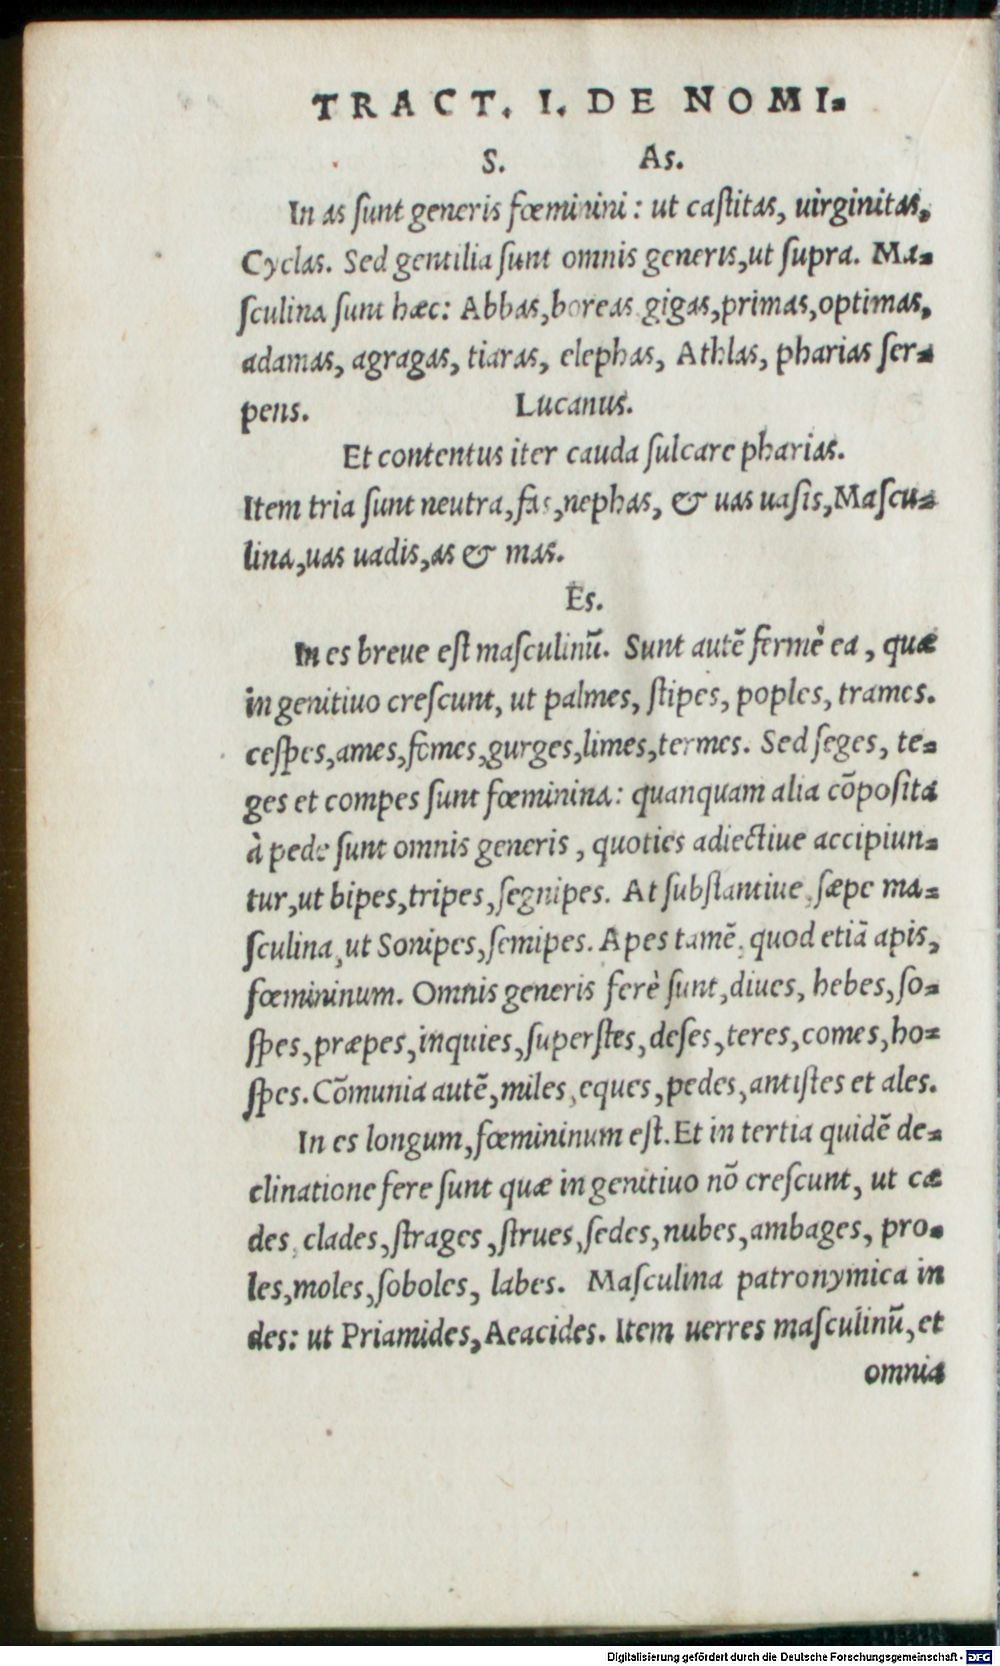 TRACT. I. DE NOMI-
S. As.
In as ſunt generis fœminini: ut caſtitas, uirginitas,
Cyclas. Sed gentilia ſunt omnis generis,ut ſupra. Ma-
ſculina ſunt hæc: Abbas,boreas gigas,primas,optimas,
adamas, agragas, tiaras, elephas, Athlas, pharias ſer-
pens. Lucanus.
Et contentus iter cauda ſulcare pharias.
Item tria ſunt neutra,fas,nephas, & uas uaſis,Maſcu-
lina,uas uadis,as & mas.
Es.
In es breue eſt maſculinū. Sunt autē fermè ea, quæ
in genitiuo creſcunt, ut palmes, ſtipes, poples, trames.
ceſpes,ames,fomes,gurges,limes,termes. Sed ſeges, te-
ges et compes ſunt fœminina: quanquam alia cōpoſita
à pede ſunt omnis generis, quoties adiectiue accipiun-
tur,ut bipes,tripes,ſegnipes. At ſubſtantiue,ſæpe ma-
ſculina,ut Sonipes,ſemipes. Apes tamē, quod etiā apis,
fœmininum. Omnis generis ferè ſunt,diues, hebes,ſo-
ſpes,præpes,inquies,ſuperſtes,deſes,teres,comes,ho-
ſpes. Cōmunia autē,miles,eques,pedes,antiſtes et ales.
In es longum,fœmininum eſt. Et in tertia quidē de-
clinatione fere ſunt quæ in genitiuo nō creſcunt, ut cæ
des, clades,ſtrages,ſtrues,ſedes,nubes,ambages, pro-
les,moles,ſoboles, labes. Maſculina patronymica in
des: ut Priamides,Aeacides. Item uerres maſculinū,et
omnia
Digitalisierung gefördert durch die Deutsche Forschungsgemeinschaft - DFG